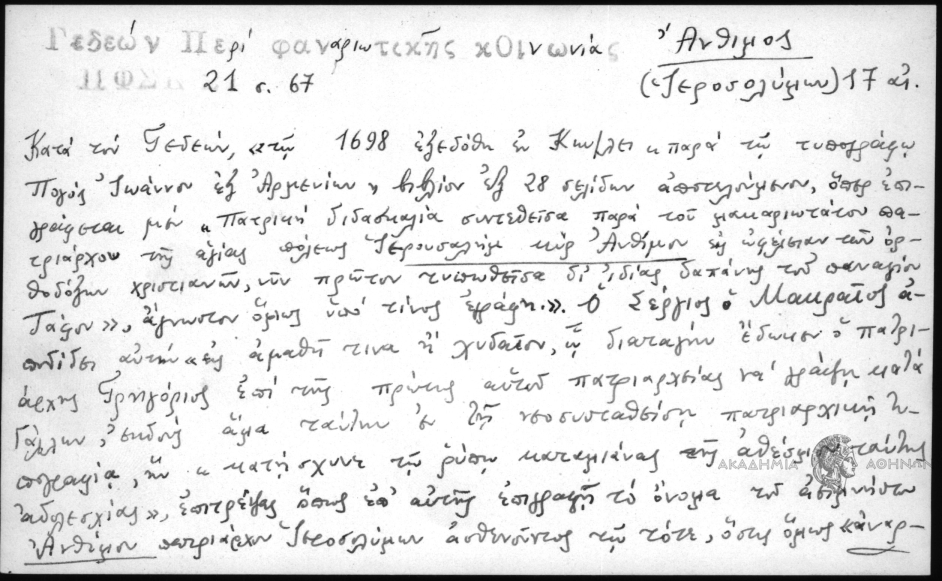 Γεδεών Περί φαναριωτικῆς κοινωνίας
Ἄνθιμος
21 σ. 67
(Ἱεροσολύμων) 17 αἰ.
Κατά τόν Γεδεών, «τῷ 1698 ἐξεδόθη ἐν Κων/λει «παρά τῷ τυπογράφῳ
Πογός Ἰωάννου ἐξ Ἀρμενίων» βιβλίον ἐξ 28 σελίδων ἀποτελούμενον, ὅπερ ἐπι-
γράφεται μέν «Πατρική διδασκαλία συντεθεῖσα παρά τοῦ μακαριωτάτου πα-
τριάρχου τῆς ἁγίας πόλεως Ἱερουσαλήμ κύρ Ἀνθίμου εἰς ὠφέλειαν τῶν ὀρ-
θοδόξων χριστιανῶν, νῦν πρῶτον τυπωθεῖσα δι' ἰδίας δαπάνης τοῦ παναγίου
Τάφου», ἄγνωστον ὅμως ὑπό τίνος ἐγράφη.». Ὁ Σέργιος ὁ Μακραῖος ἀ-
ποδίδει αὐτήν «εἰς ἀμαθῆ τινα ἤ χυδαῖον, ᾧ διαταγήν ἔδωκεν ὁ πατρι-
άρχης Γρηγόριος ἐπί τῆς πρώτης αὐτοῦ πατριαρχείας νά γράψῃ κατά
Γάλλων, ἐκδούς ἅμα ταύτην ἐν τῇ νεοσυσταθείσῃ πατριαρχικῇ τυ-
πογραφίᾳ, ἥν «κατῄσχυνε τῷ ῥύπῳ καταμιάνας τῆς ἀθέσμου ταύτης
ἀδολεσχίας», ἐπιτρέψας ὅπως ἐπ' αὐτῆς ἐπιγραφῇ τό ὄνομα τοῦ ἀειμνήστου
Ἀνθίμου πατριάρχου Ἱεροσολύμων ἀσθενοῦντος τῷ τότε, ὅστις ὅμως «ἀναρ-
ΑΚΑΔΗΜΙΑ ΑΘΗΝΩΝ